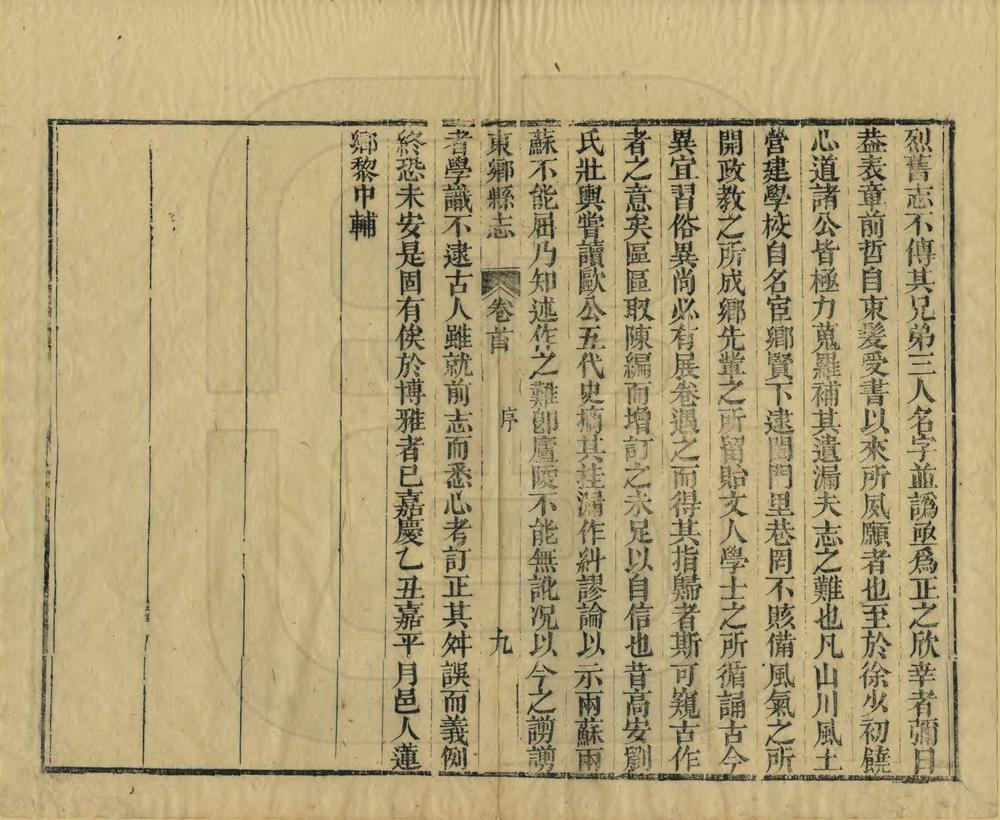 烈舊志不傳其兄弟三人名字並譌亟爲正之欣幸者彌日
葢表章前哲自束髮受書以來所夙願者也至於徐少初饒
心道諸公皆極力蒐羅補其遺漏夫志之難也凡山川風土
營建學校自名宦鄉賢下逮閨門里巷罔不賅備風氣之所
開政教之所成鄉先輩之所留貽文人學士之所循誦古今
異宜習俗異尚必有展卷遇之而得其指歸者斯可窺古作
者之意矣區區取陳編而增訂之未足以自信也昔高安劉
氏壯輿嘗讀歐公五代史摘其挂漏作糾謬論以示兩蘇兩
蘇不能屈乃知述作之難卽廬陵不能無訛況以今之謭謭
東鄉縣志 卷首 序 九
者學識不逮古人雖就前志而悉心考訂正其舛誤而義例
終恐未安是固有俟於博雅者已嘉慶乙丑嘉平月邑人蓮
鄉黎中輔